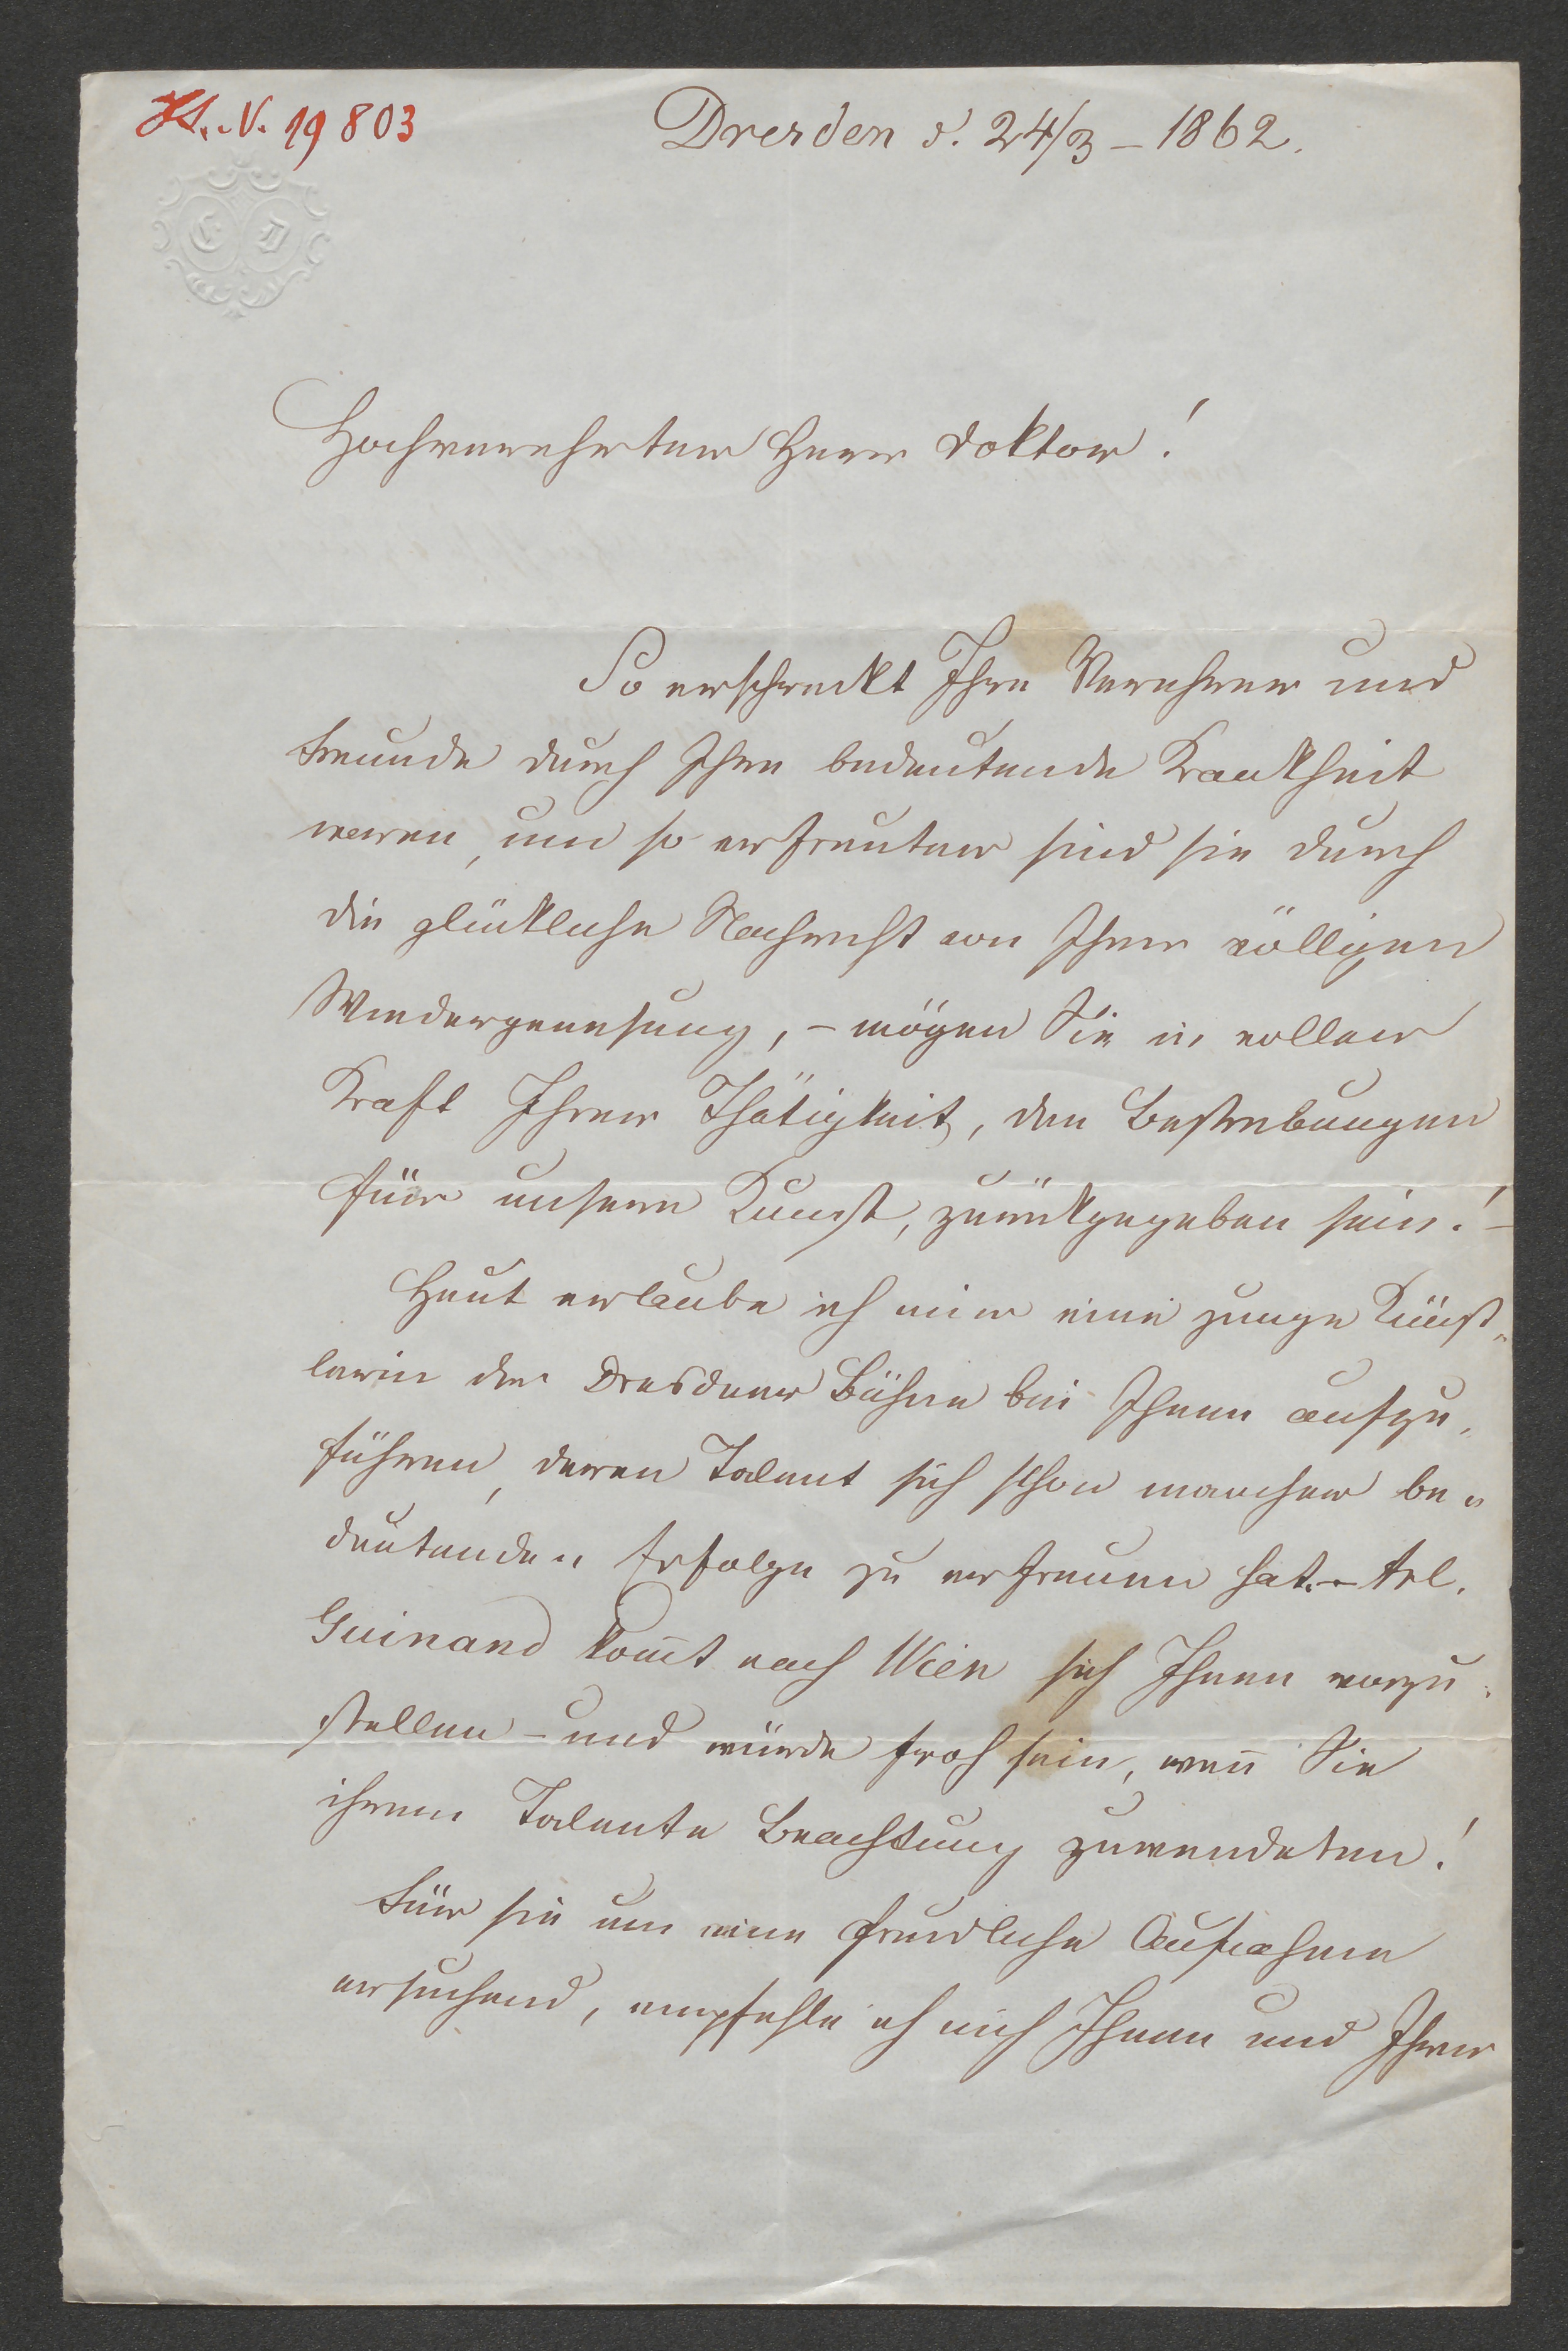 Hs. V. 19803
Dresden d. 24/3 – 1862.
E D
Hochverehrter Herr Doktor!
So erschreckt Ihre Verehrer und
Freunde durch Ihre bedeutende Krankheit
waren, um so erfreuter sind sie durch
die glückliche Nachricht von Ihrer völligen
Wiedergenesung, – mögen Sie in voller
Kraft Ihrer Thätigkeit, den Bestrebungen
für unsere Kunst, zurückgegeben sein! –
Heut erlaube ich mir eine junge Künst-
lerin der Dresdner Bühne bei Ihnen aufzu-
führen, deren Talent sich schon mancher be-
deutenden Erfolge zu erfreuen hat. – Frl.
Guinand kom̅t nach Wien sich Ihnen vorzu-
stellen – und würde froh sein, wen̅ Sie
ihrem Talente Beachtung zuwendeten!
Für sie um eine freundliche Aufnahme
ersuchend, empfehle ich mich Ihnen und Ihrer